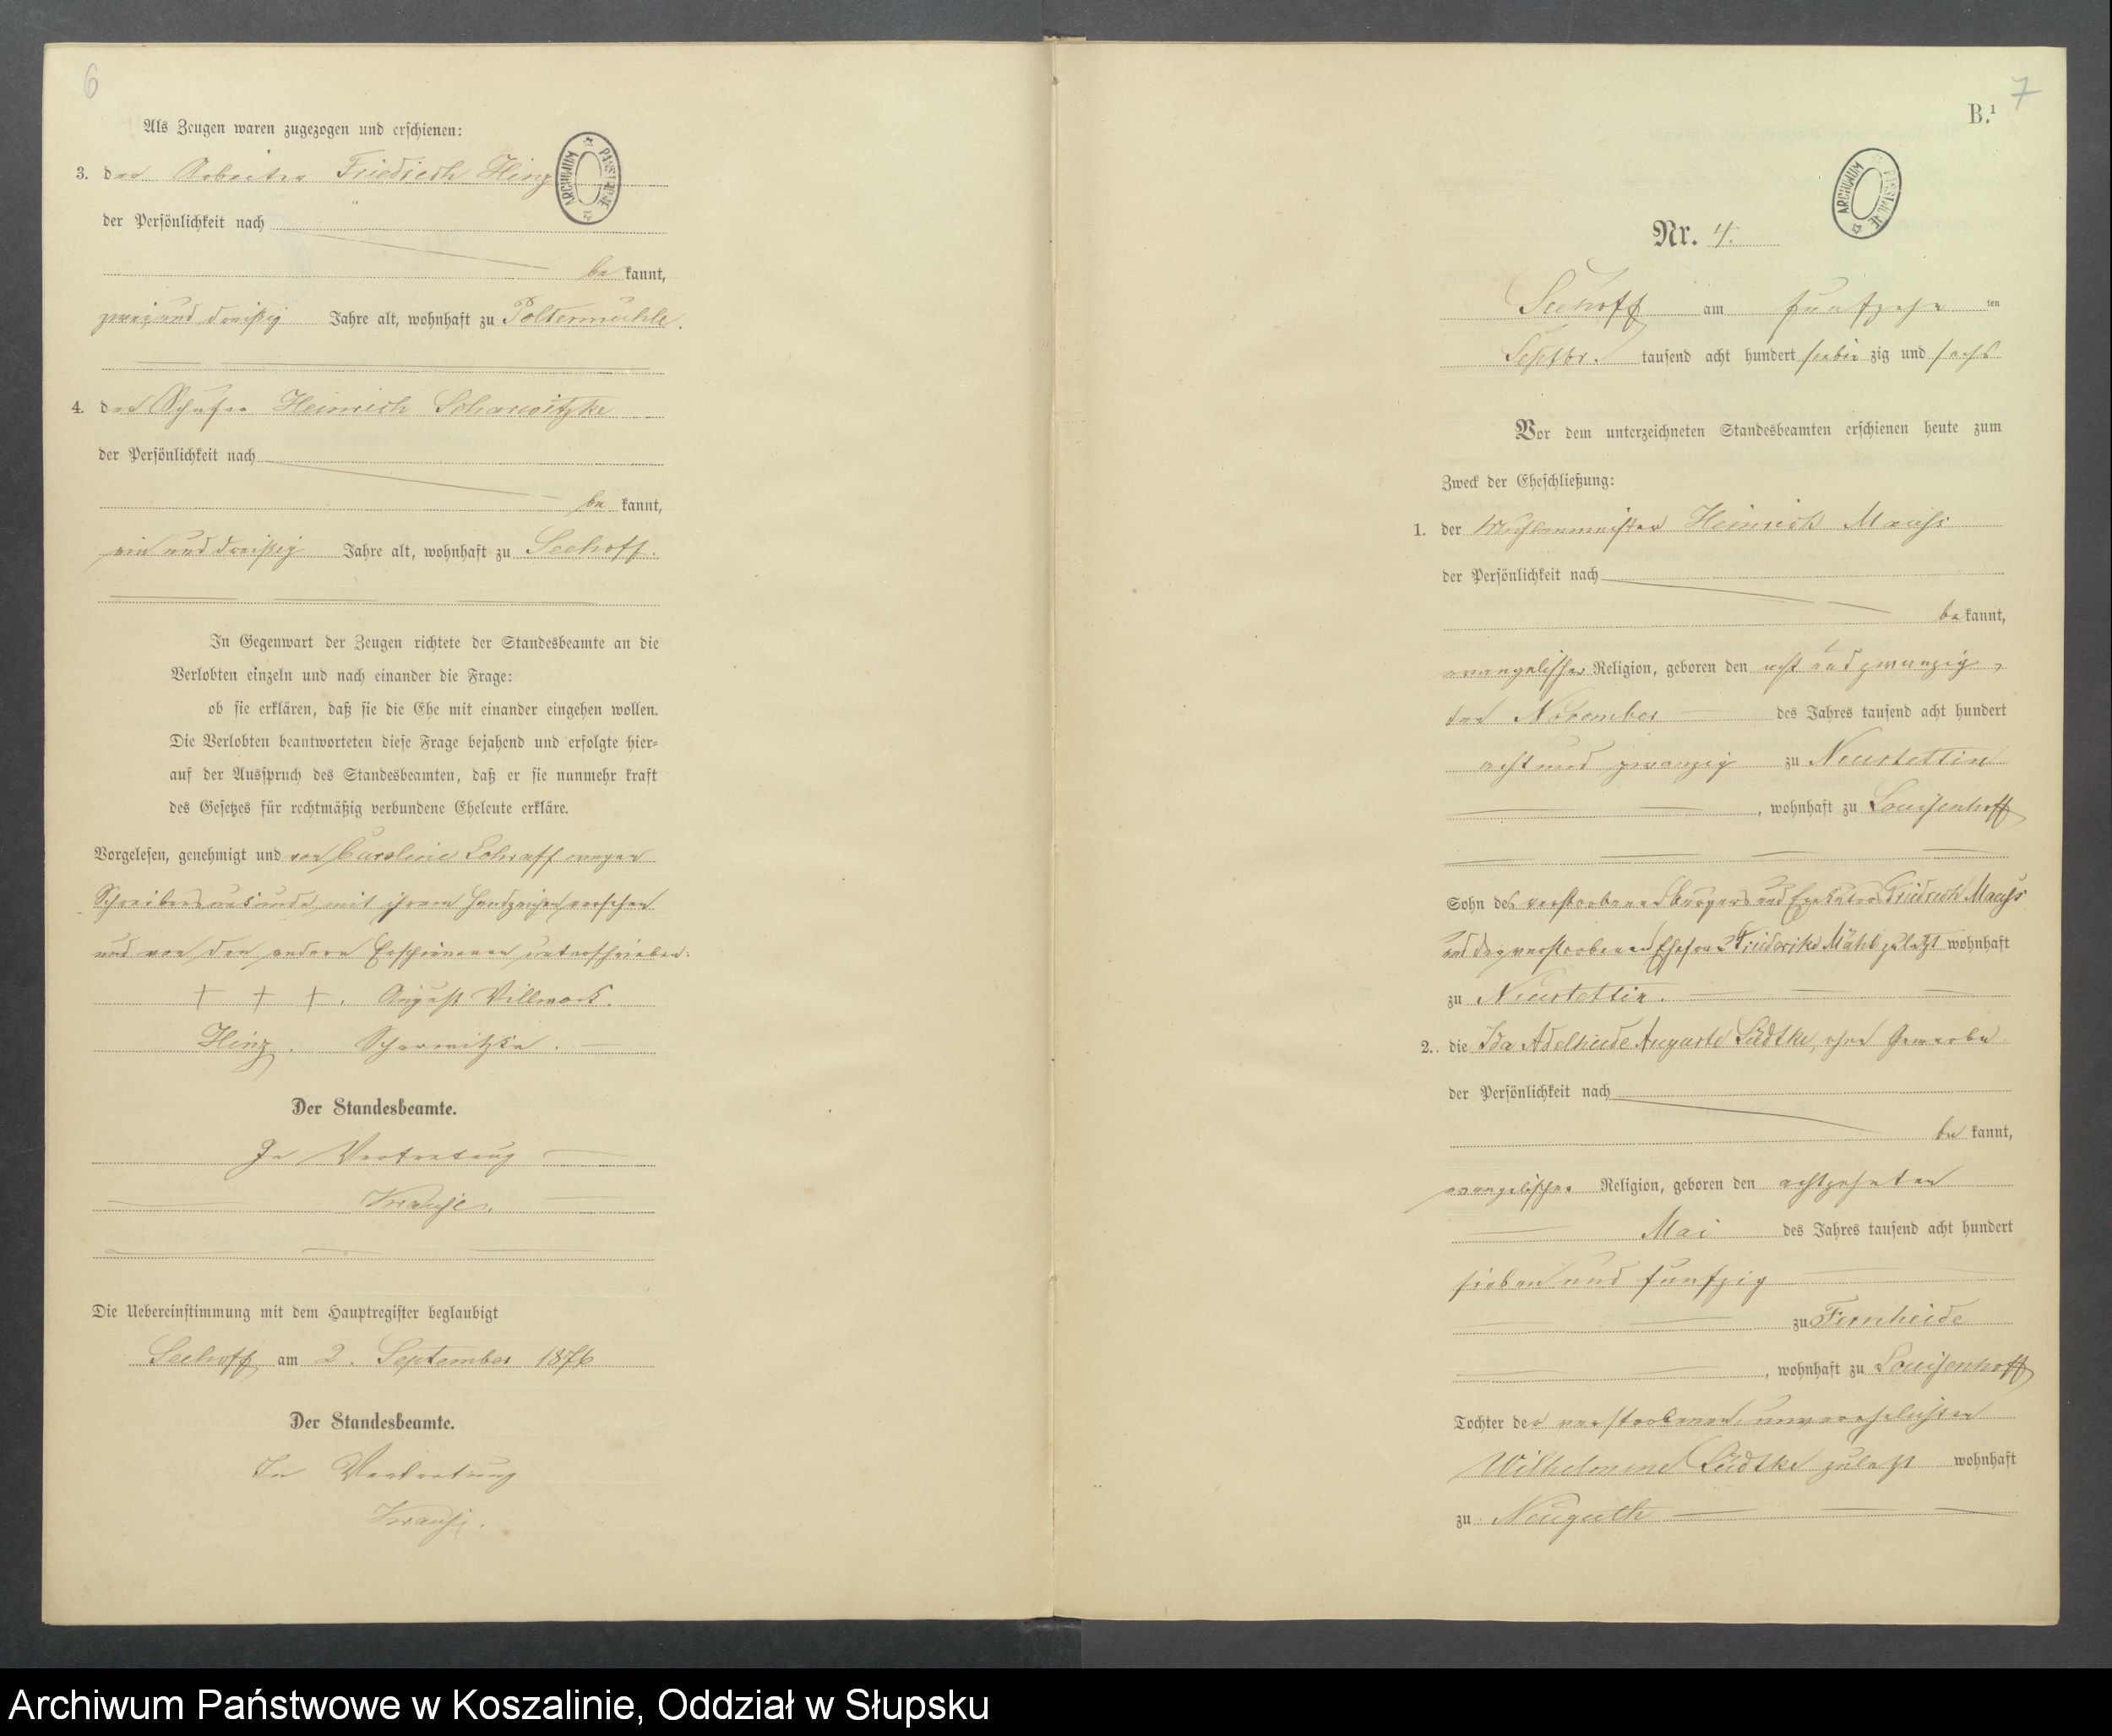 6
Als Zeugen waren zugezogen und erschienen:
3. der Arbeiter Friedrich Hinz
ARCHIWUM PAŃSTWOWE
der Persönlichkeit nach
be kannt,
zwei und dreißig Jahre alt, wohnhaft zu Poltermühle.
4. der Schäfer Heinrich Scharwitzke
der Persönlichkeit nach
be kannt,
ein und dreißig Jahre alt, wohnhaft zu Seehoff.
In Gegenwart der Zeugen richtete der Standesbeamte an die
Verlobten einzeln und nach einander die Frage:
ob sie erklären, daß sie die Ehe mit einander eingehen wollen.
Die Verlobten beantworteten diese Frage bejahend und erfolgte hier-
auf der Ausspruch des Standesbeamten, daß er sie nunmehr kraft
des Gesetzes für rechtmäßig verbundene Eheleute erkläre.
Vorgelesen, genehmigt und von Caroline wegen
Schreibensunkunde mit ihrem Handzeichen versehen
und von den andern Erschienenen unterschrieben.
+ + +. August Villwock.
Hinz. Scharwitzke.
Der Standesbeamte.
In Vertretung
Krause.
Die Uebereinstimmung mit dem Hauptregister beglaubigt
Seehoff am 2. September 1876
Der Standesbeamte.
In Vertretung
Krause.
7
B.¹
ARCHIWUM PAŃSTWOWE
Nr. 4.
Seehoff am funfzehn ten
Septbr. tausend acht hundert sieben zig und sechs
Vor dem unterzeichneten Standesbeamten erschienen heute zum
Zweck der Eheschließung:
1. der Mühlenmeister Heinrich Maass
der Persönlichkeit nach
be kannt,
evangelischer Religion, geboren den acht und zwanzig
ten November des Jahres tausend acht hundert
acht und zwanzig zu Neustettin
, wohnhaft zu Louisenhoff
Sohn des verstorbenen Bürgers und Friedrich Maass
und verstorbenen Ehefrau Friederike zuletzt wohnhaft
zu Neustettin.
2. die Ida Adelheide Auguste Lüdtke, ohne Gewerbe
der Persönlichkeit nach
be kannt,
evangelischer Religion, geboren den achtzehnten
Mai des Jahres tausend acht hundert
sieben und funfzig
zu Fernheide
, wohnhaft zu Louisenhoff
Tochter der verstorbenen unverehelichten
Wilhelmine Lüdtke zuletzt wohnhaft
zu Neuguth
Archiwum Państwowe w Koszalinie, Oddział w Słupsku